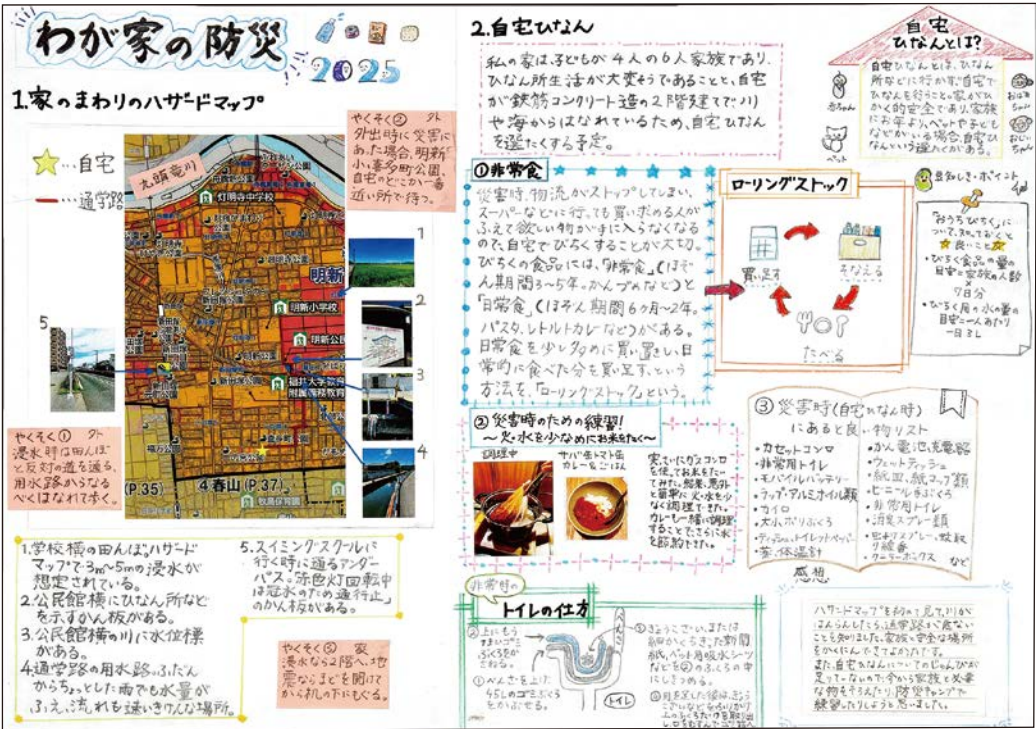 わが家の防災
2025
1.家のまわりのハザードマップ
…自宅
…通学路
やくそく② 外
外出時に災害に
あった場合、明新
小、喜多町公園、
自宅のどこか一番
近い所で待つ。
灯明寺中学校
明新
明新小学校
明新公民
福井大学教育
附属義務教育
4春山(P.37)
P.35)
1
2
3
4
5
やくそく① 外
浸水時は田んぼ
と反対の道を通る。
用水路からなる
べくはなれて歩く。
1.学校横の田んぼ。ハザード
マップで3m~5mの浸水が
想定されている。
2.公民館横にひなん所など
を示すかん板がある。
3.公民館横の川に水位標
がある。
4.通学路の用水路。ふだん
からちょっとした雨でも水量が
ふえ、流れも速いきけんな場所。
5.スイミングスクールに
行く時に通るアンダー
パス。「赤色灯回転中
は冠水のため通行止」
のかん板がある。
やくそく③ 家
浸水なら2階へ、地
震ならまどを開けて
から机の下にもぐる。
2.自宅ひなん
私の家は、子どもが4人の6人家族であり、
ひなん所生活が大変そうであることと、自宅
が鉄筋コンクリート造の2階建てで、川
や海からはなれているため、自宅ひなん
を選たくする予定。
自宅
ひなんとは?
自宅ひなんとは、ひなん
所などに行かず、自宅で
ひなんを行うこと。家がひ
かく的安全であり、家族
にお年より、ペットや子ども
などがいる場合、自宅ひ
なんという選たくがある。
赤ちゃん
ペット
おばあ
ちゃん
おじい
ちゃん
①非常食
災害時、物流がストップしてしまい、
スーパーなどに行っても買い求める人が
ふえて欲しい物が手に入らなくなる
ので、自宅でびちくすることが大切。
びちくの食品には、「非常食」(ほぞ
ん期間3~5年。かんづめなど)と
「日常食」(ほぞん期間6ヶ月~2年。
パスタ、レトルトカレーなど)がある。
日常食を少し多めに買い置きし、日
常的に食べた分を買い足す、という
方法を、「ローリングストック」という。
ローリングストック
買い足す
そなえる
たべる
豆知しき・ポイント
「おうちびちく」に
ついて、知っておくと
良いこと
・びちく食品の量の
目安=家族の人数
×
7日分
・びちく用の水の量の
目安=一人あたり
一日3L
②災害時のための練習!
~火・水を少なめにお米をたく~
調理中
サバ缶トマト缶
カレー&ごはん
実さいにガスコンロ
を使ってお米をたい
てみた。結果、意外
と簡単に、火・水を少
なく調理できた。
カレーも一緒に調理
することで、さらに水
を節約できた。
③災害時(自宅ひなん時)
にあると良い物リスト
・カセットコンロ
・非常用トイレ
・モバイルバッテリー
・ラップ・アルミホイル類
・カイロ
・大小ポリぶくろ
・ティッシュ、トイレットペーパー
・薬、体温計
・かん電池、充電器
・ウェットティッシュ
・紙皿、紙コップ類
・ビニール手ぶくろ
・非常用トイレ
・消臭スプレー類
・虫よけスプレー、蚊取
り線香
・クーラーボックス など
非常時の
トイレの仕方
②上にもう
一ま
ぶくろを
かさねる。
①べんざを上げ、
45Lのゴミぶくろ
をかぶせる。
べんざ
トイレ
③ぎょうこざい、または
細かくちぎった新聞
紙、ペット用吸水シーツ
などを②のふくろの中
にしきつめる。
④用を足した後は、ぎょう
こざいなどをふりかけ
上のふくろだけを取り出
し、口をむすんで
感想
ハザードマップを初めて見て、川が
はんらんしたら、通学路が危ない
ことを知りました。家族と安全な場所
をかくにんできてよかったです。
また、自宅ひなんについてのじゅんびが
足りていないので、今から家族と必要
な物をそろえたり、防災キャンプで
練習したりしようと思いました。